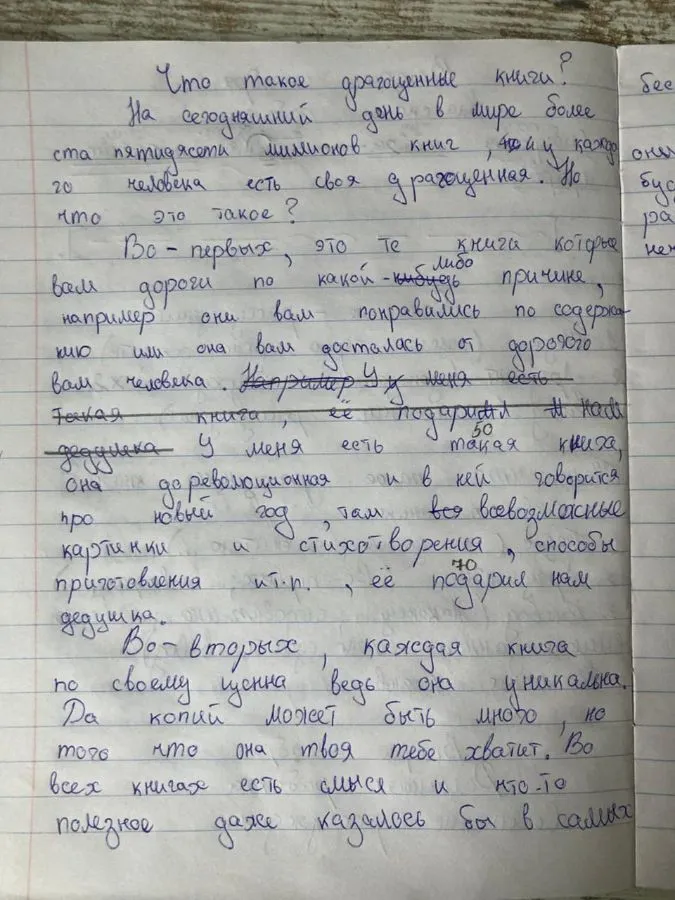 Что такое драгоценные книги?
На сегодняшний день в мире более
ста пятидясети милионов книг, и у каждо
го человека есть своя драгоценная. Но
что это такое?
Во-первых, это те книга которые
вам дороги по какой-либо причине,
например они вам понравились по содержа
нию или она вам досталась от дорогого
вам человека. Например У у меня есть
такая книга, её подарил нам
дедушка У меня есть такая книга,
50
она дореволюционная и в ней говорится
про новый год, там вся всевозможные
картинки и стихотворения, способы
приготовления и т.п., её подарил нам
70
дедушка.
Во-вторых, каждая книга
по своему ценна ведь она уникальна.
Да копий может быть много, но
того что она твоя тебе хватит. Во
всех книгах есть смысл и что-то
полезное даже казалось бы в самых
бес
оня
бус
ра
нен